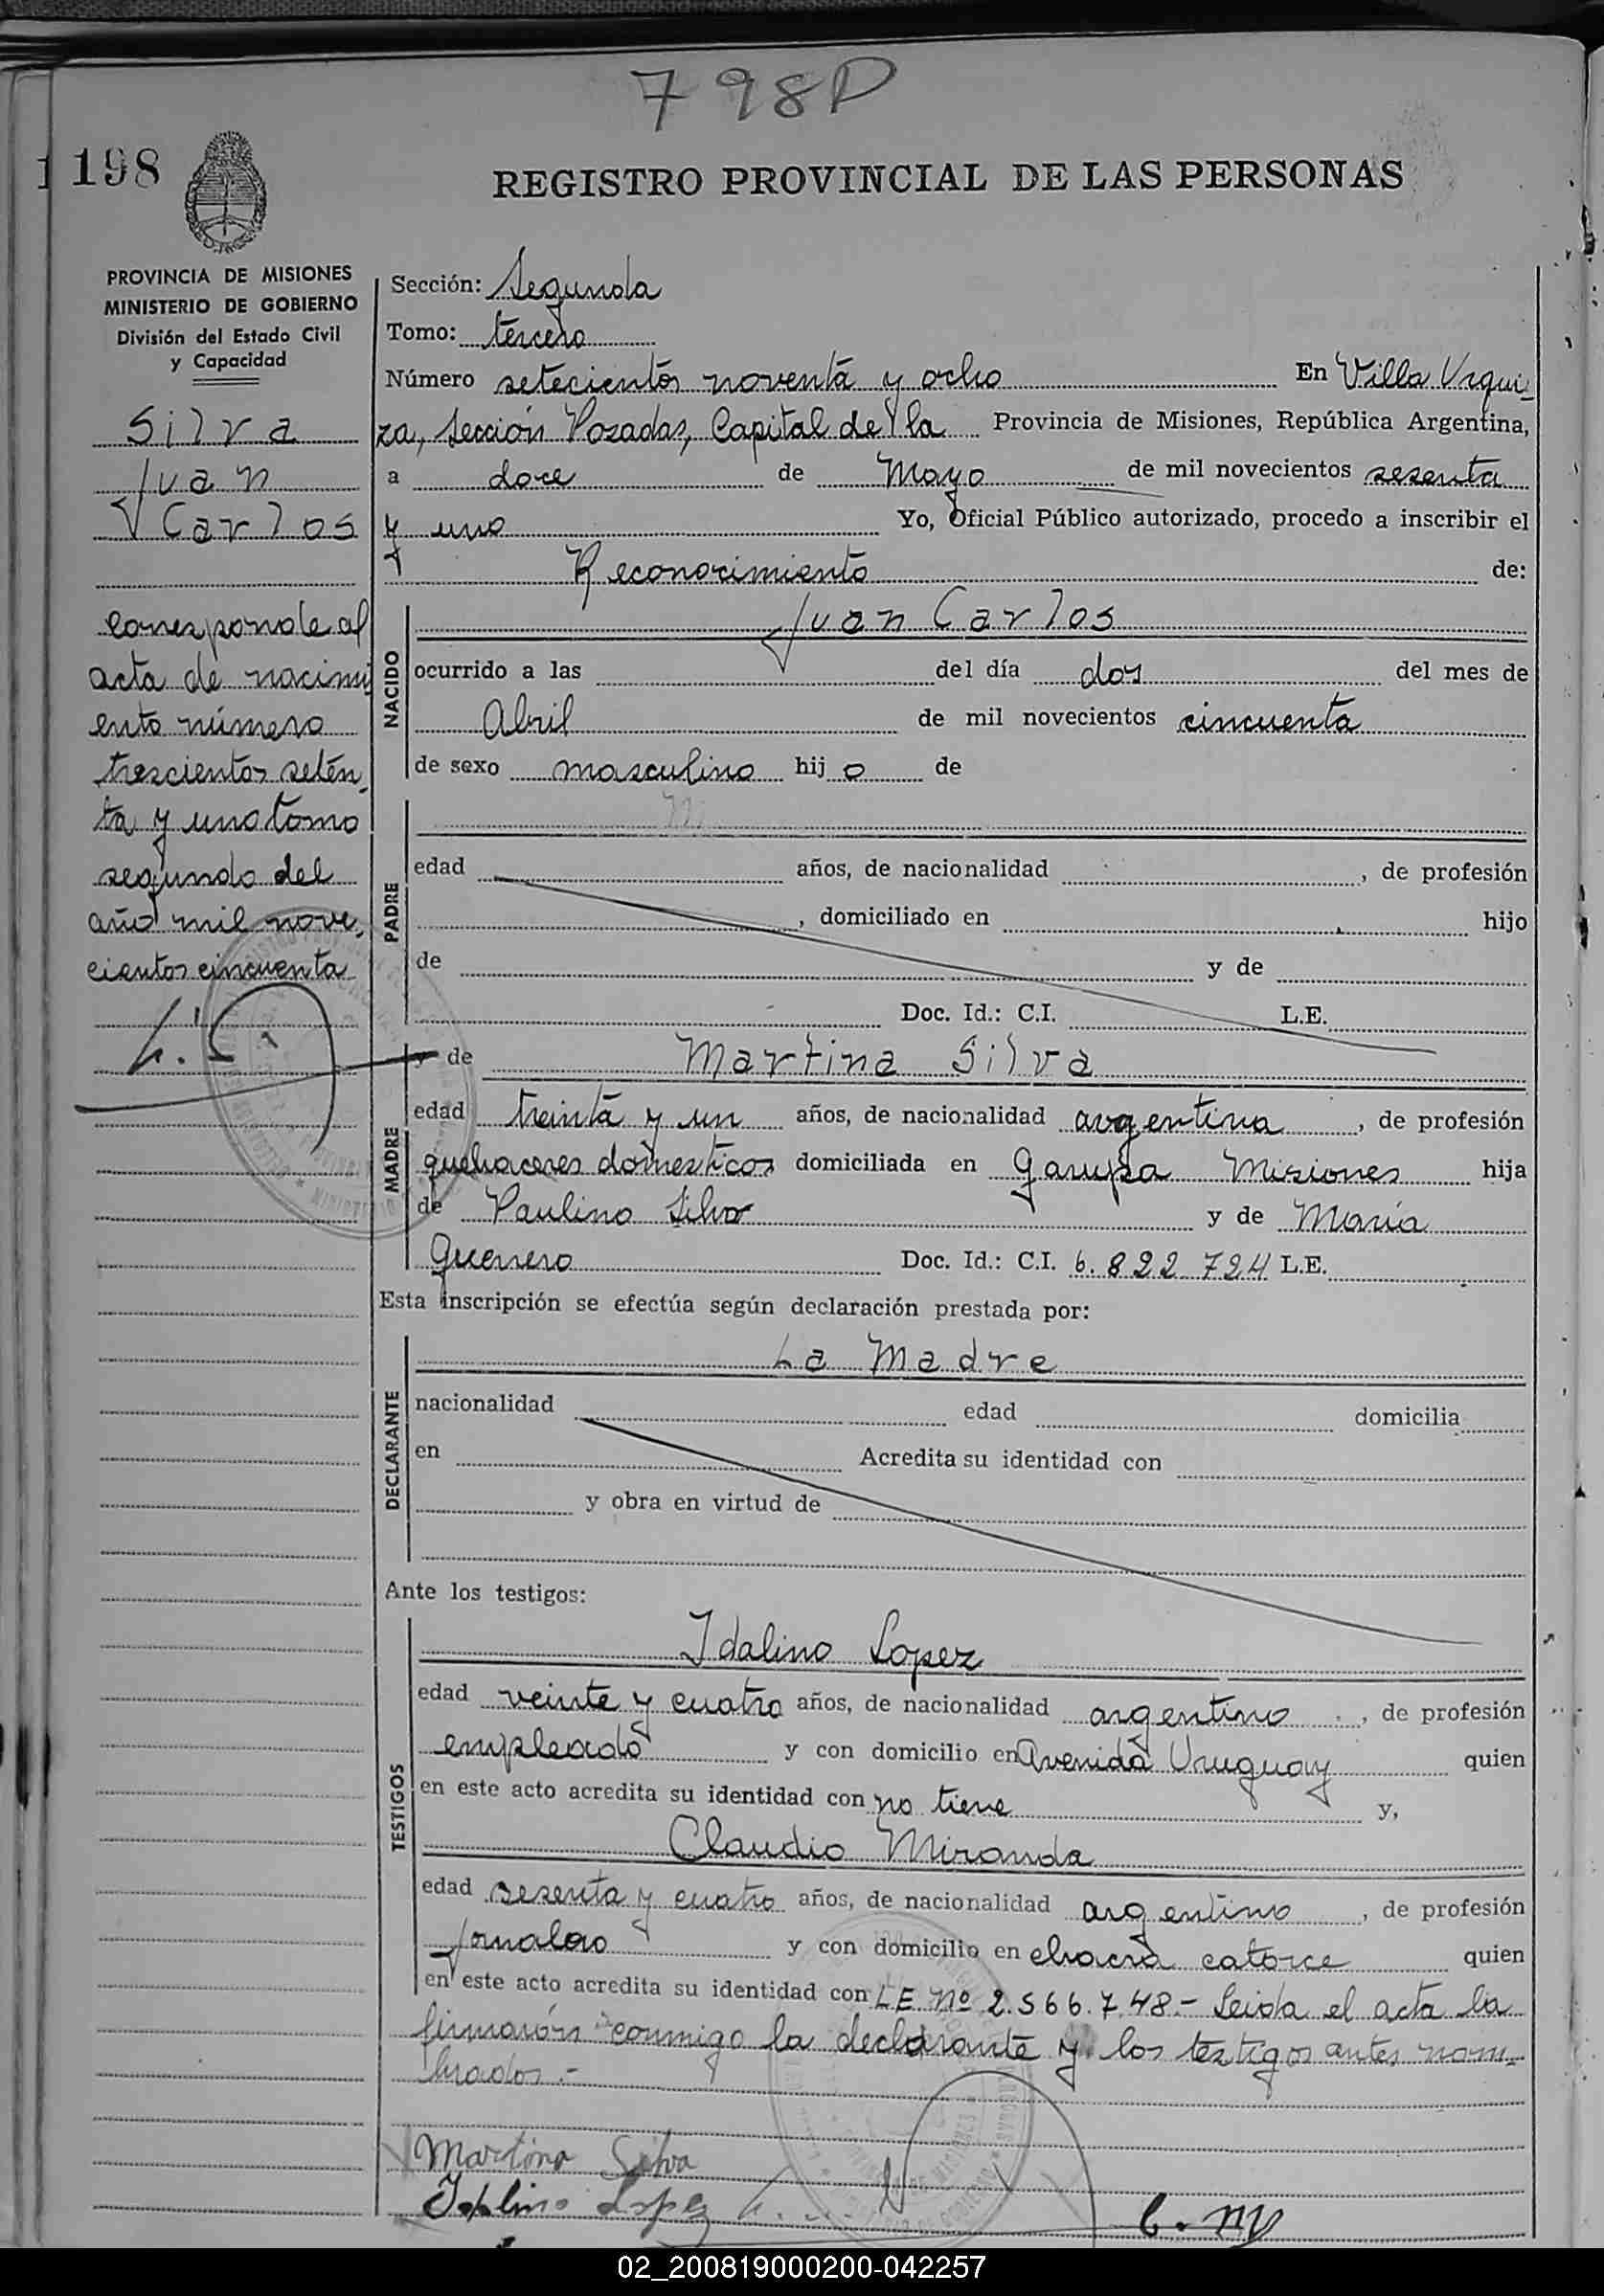 798D
1198
REGISTRO PROVINCIAL DE LAS PERSONAS
PROVINCIA DE MISIONES
MINISTERIO DE GOBIERNO
División del Estado Civil
y Capacidad
Silva
Juan
Carlos
Corresponde al
acta de nacimi
ento número
trescientos setén
ta y uno tomo
segundo del
año mil nove,
cientos cincuenta
Sección: Segunda
Tomo: tercero
Número setecientos noventa y ocho En Villa Urqui-
za, sección Posadas, Capital de la Provincia de Misiones, República Argentina,
a doce de Mayo de mil novecientos sesenta
y uno Yo, Oficial Público autorizado, procedo a inscribir el
Reconocimiento de:
NACIDO
Juan Carlos
ocurrido a las del día dos del mes de
Abril de mil novecientos cincuenta
de sexo masculino hij o de
PADRE
edad años, de nacionalidad , de profesión
, domiciliado en hijo
de y de
Doc. Id.: C.I. L.E.
MADRE
y de Martina Silva
edad treinta y un años, de nacionalidad argentina , de profesión
quehaceres domesticos domiciliada en Garupa Misiones hija
de Paulino Silva y de María
Guerrero Doc. Id.: C.I. 6.822.724 L.E.
Esta inscripción se efectúa según declaración prestada por:
DECLARANTE
La Madre
nacionalidad edad domicilia
en Acredita su identidad con
y obra en virtud de
Ante los testigos:
TESTIGOS
Idalino Lopez
edad veinte y cuatro años, de nacionalidad argentino , de profesión
empleado y con domicilio en Avenida Uruguay quien
en este acto acredita su identidad con no tiene y,
Claudio Miranda
edad sesenta y cuatro años, de nacionalidad argentino , de profesión
Jornalero y con domicilio en chacra catorce quien
en este acto acredita su identidad con L E Nº 2.566.748.- Leida el acta la
firmarón conmigo la declarante y los testigos antes nom-
brados.-
Martina Silva
Idalino Lopez
C. M
02_200819000200-042257